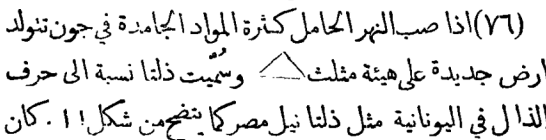 (٧٦) اذا صب النهر الحامل كثرة المواد الجامدة في جون تتولد
ارض جديدة على هيئة مثلث وسُمّيت ذلتا نسبة الى حرف
الذال في اليونانية مثل ذلتا نيل مصر كما يتضح من شكل ! ١ . كان